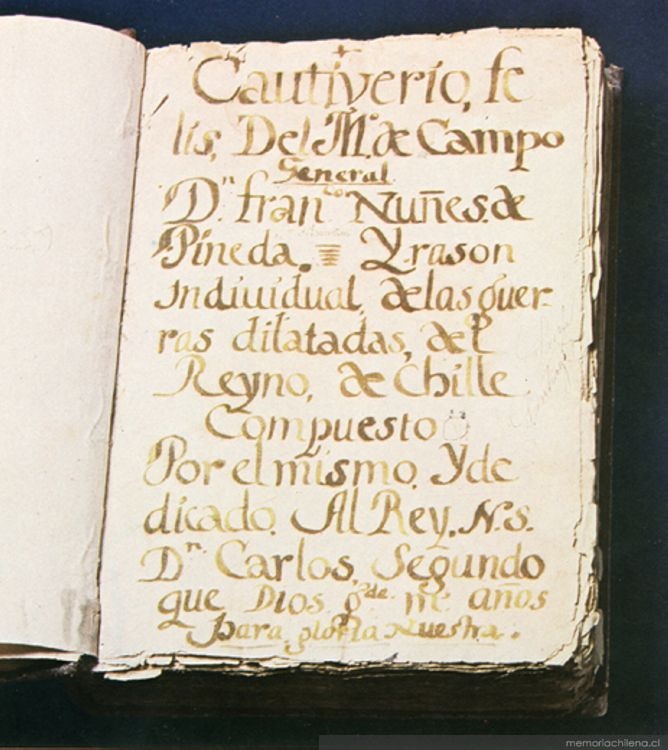 Cautiverio, fe
lis, Del M.º de Campo
General
D.ⁿ fran.ᶜᵒ Nuñes. de
Pineda. Y. rason
indiuidual, de las guer-
ras dilatadas, del
Reyno, de Chille
Compuesto
Por el mismo. Y de
dicado. Al Rey. N. s.
Dⁿ Carlos. Segundo
que Dios gᵈᵉ mᵉ años
Para gloria Nuestra.
memoriachilena.cl